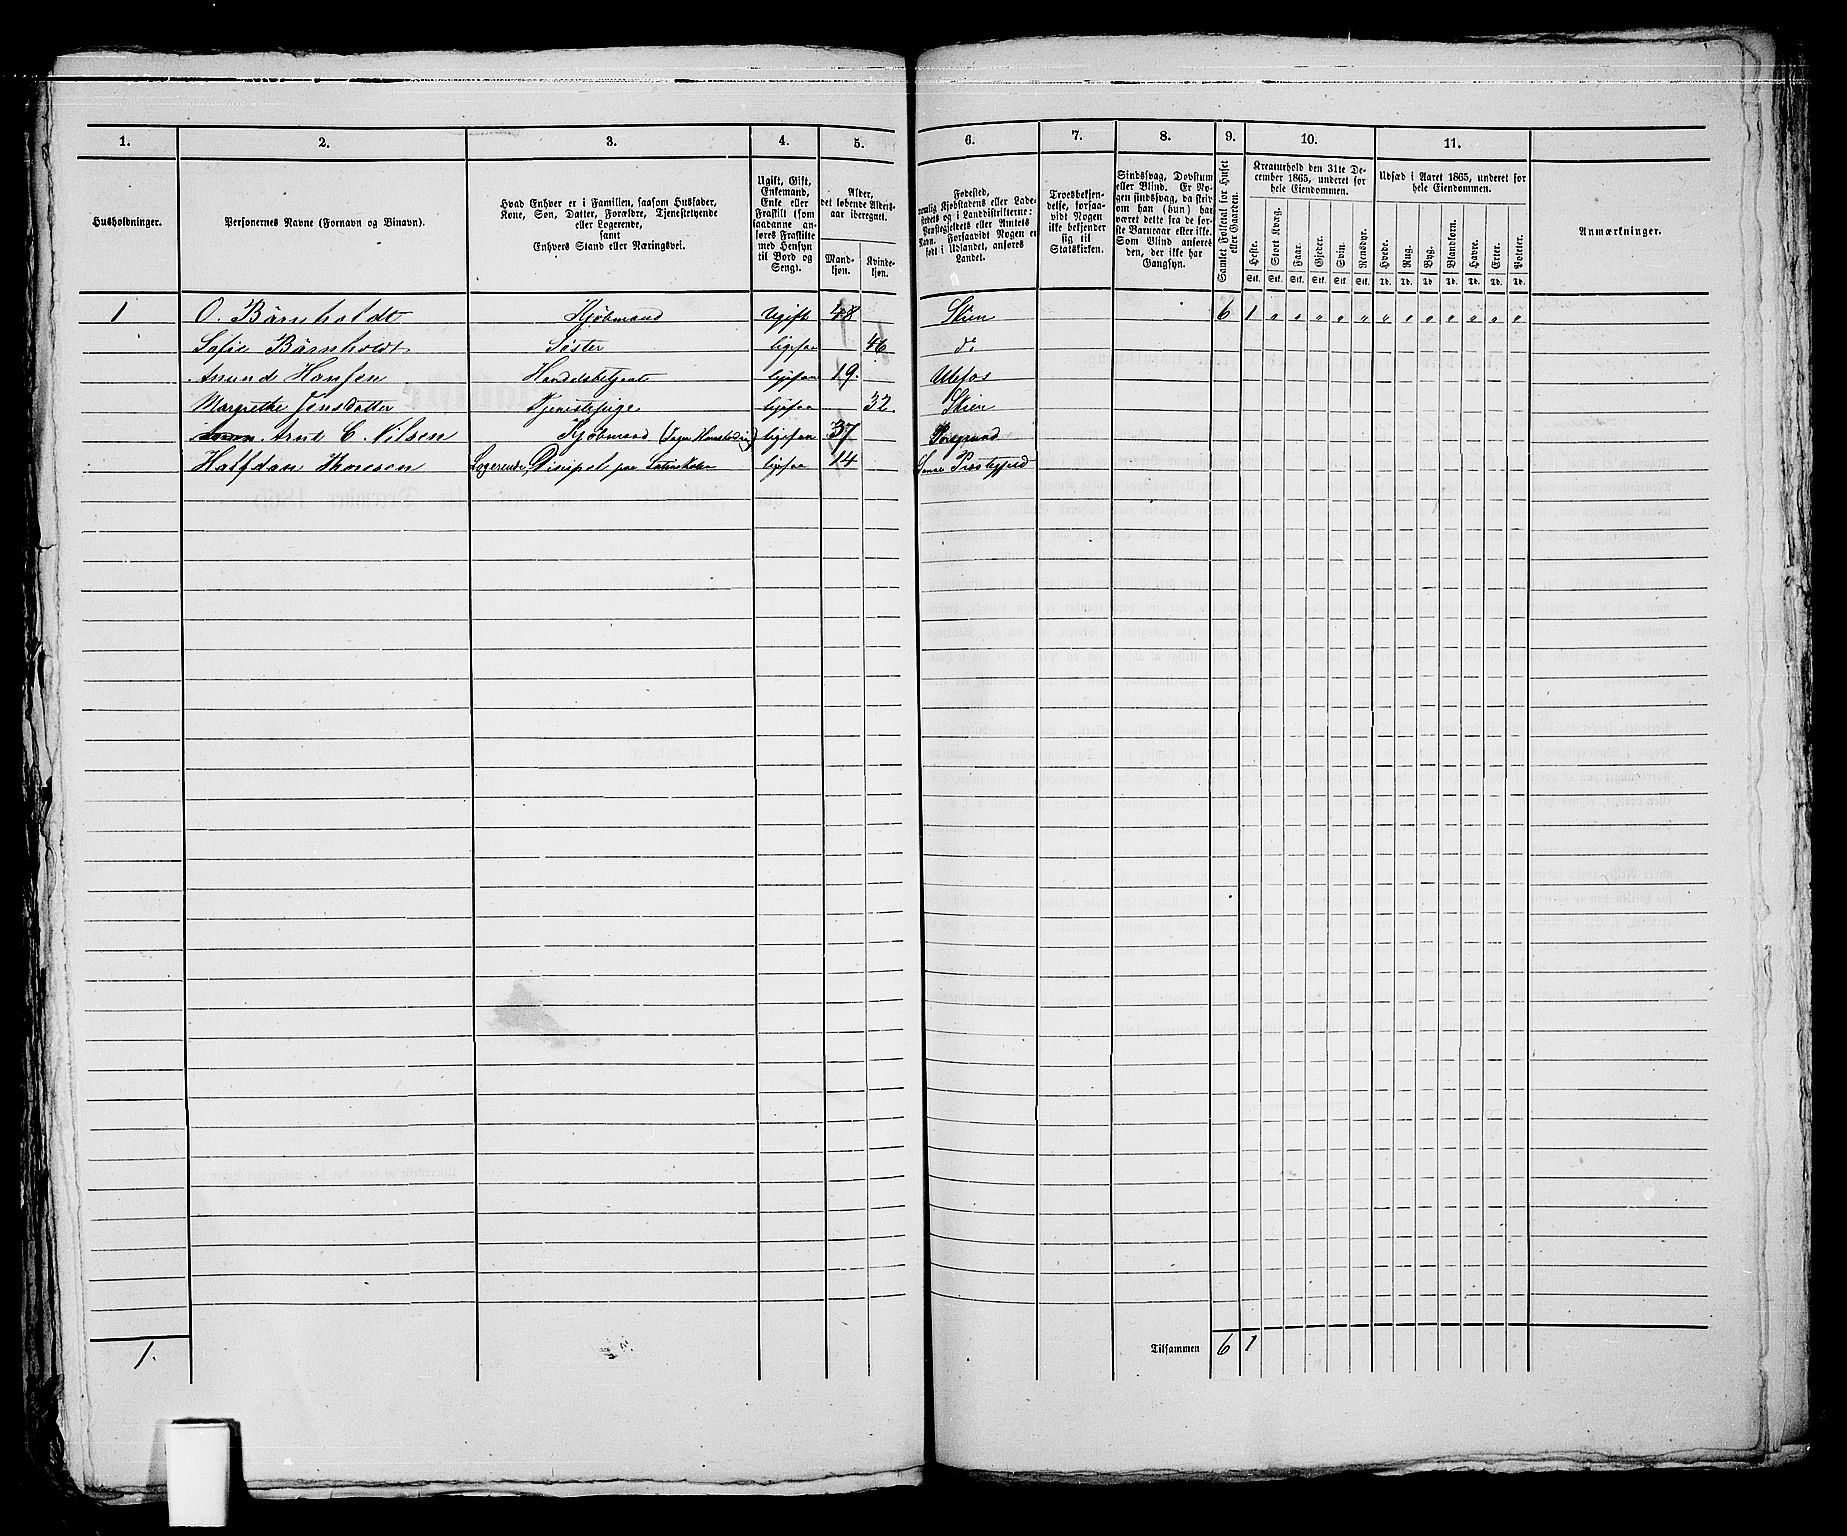 1. 2. 3. 4. 5. 6. 7. 8. 9. 10. 11.
Husholdninger.
Personernes Navne (Fornavn og Binavn).
Hvad Enhver er i Familien, saasom Husfader,
Kone, Søn, Datter, Forældre, Tjenestetyende
eller Logerende,
samt
Enhvers Stand eller Næringsvei.
Ugift, Gift,
Enkemand,
Enke eller
Fraskilt (som
saadanne an-
føres Fraskilte
med Hensyn
til Bord og
Seng).
Alder,
det løbende Alders-
aar iberegnet.
Mand-
kjøn.
Kvinde-
kjøn.
Fødested,
nemlig Kjøbstadens eller Lade-
stedets og i Landdistrikterne:
Præstegjeldets eller Amtets
Navn. Forsaavidt Nogen er
født i Udlandet, anføres
Landet.
Troesbekjen-
delse, forsaa-
vidt Nogen
ikke bekjender
sig til
Statskirken.
Sindssvag, Døvstum
eller Blind. Er No-
gen sindssvag, da skriv
om han (hun) har
været dette fra de før-
ste Barneaar eller ikke.
Som Blind anføres
den, der ikke har
Gangsyn.
Samlet Folketal for Huset
eller Gaarden.
Kreaturhold den 31te De-
cember 1865, underet for
hele Eiendommen.
Heste. Stort Kvæg. Faar. Gjeder. Svin. Rensdyr.
Stk. Stk. Stk. Stk. Stk. Stk.
Udsæd i Aaret 1865, underet for
hele Eiendommen.
Hvede. Rug. Byg. Blandkorn. Havre. Erter. Poteter.
Td. Td. Td. Td. Td. Td. Td.
Anmærkninger.
1 O. Bärnholdt Kjøbmand Ugift 48 Skien 6 1 " " " " " " " " " " " "
Sofie Bärnholdt Søster ligesaa 46 do
Amund Hansen Handelsbetjent ligesaa 19. Ulefos
Margrethe Jensdatter Tjenestepige ligesaa 32. Skien
Arnt C. Nilsen Kjøbmand ligesaa 37 Porsgrund
Halfdan Thomsen Logerende, Discipel paa Latinskolen ligesaa 14 Præstegjeld
1. Tilsammen 6 1